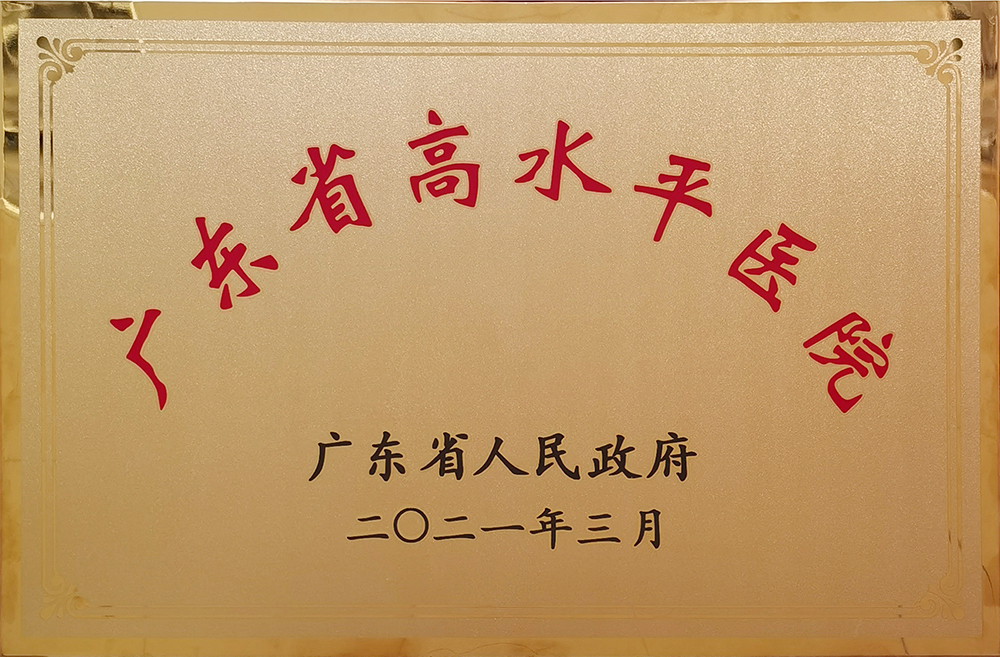 广东省高水平医院
广东省人民政府
二〇二一年三月